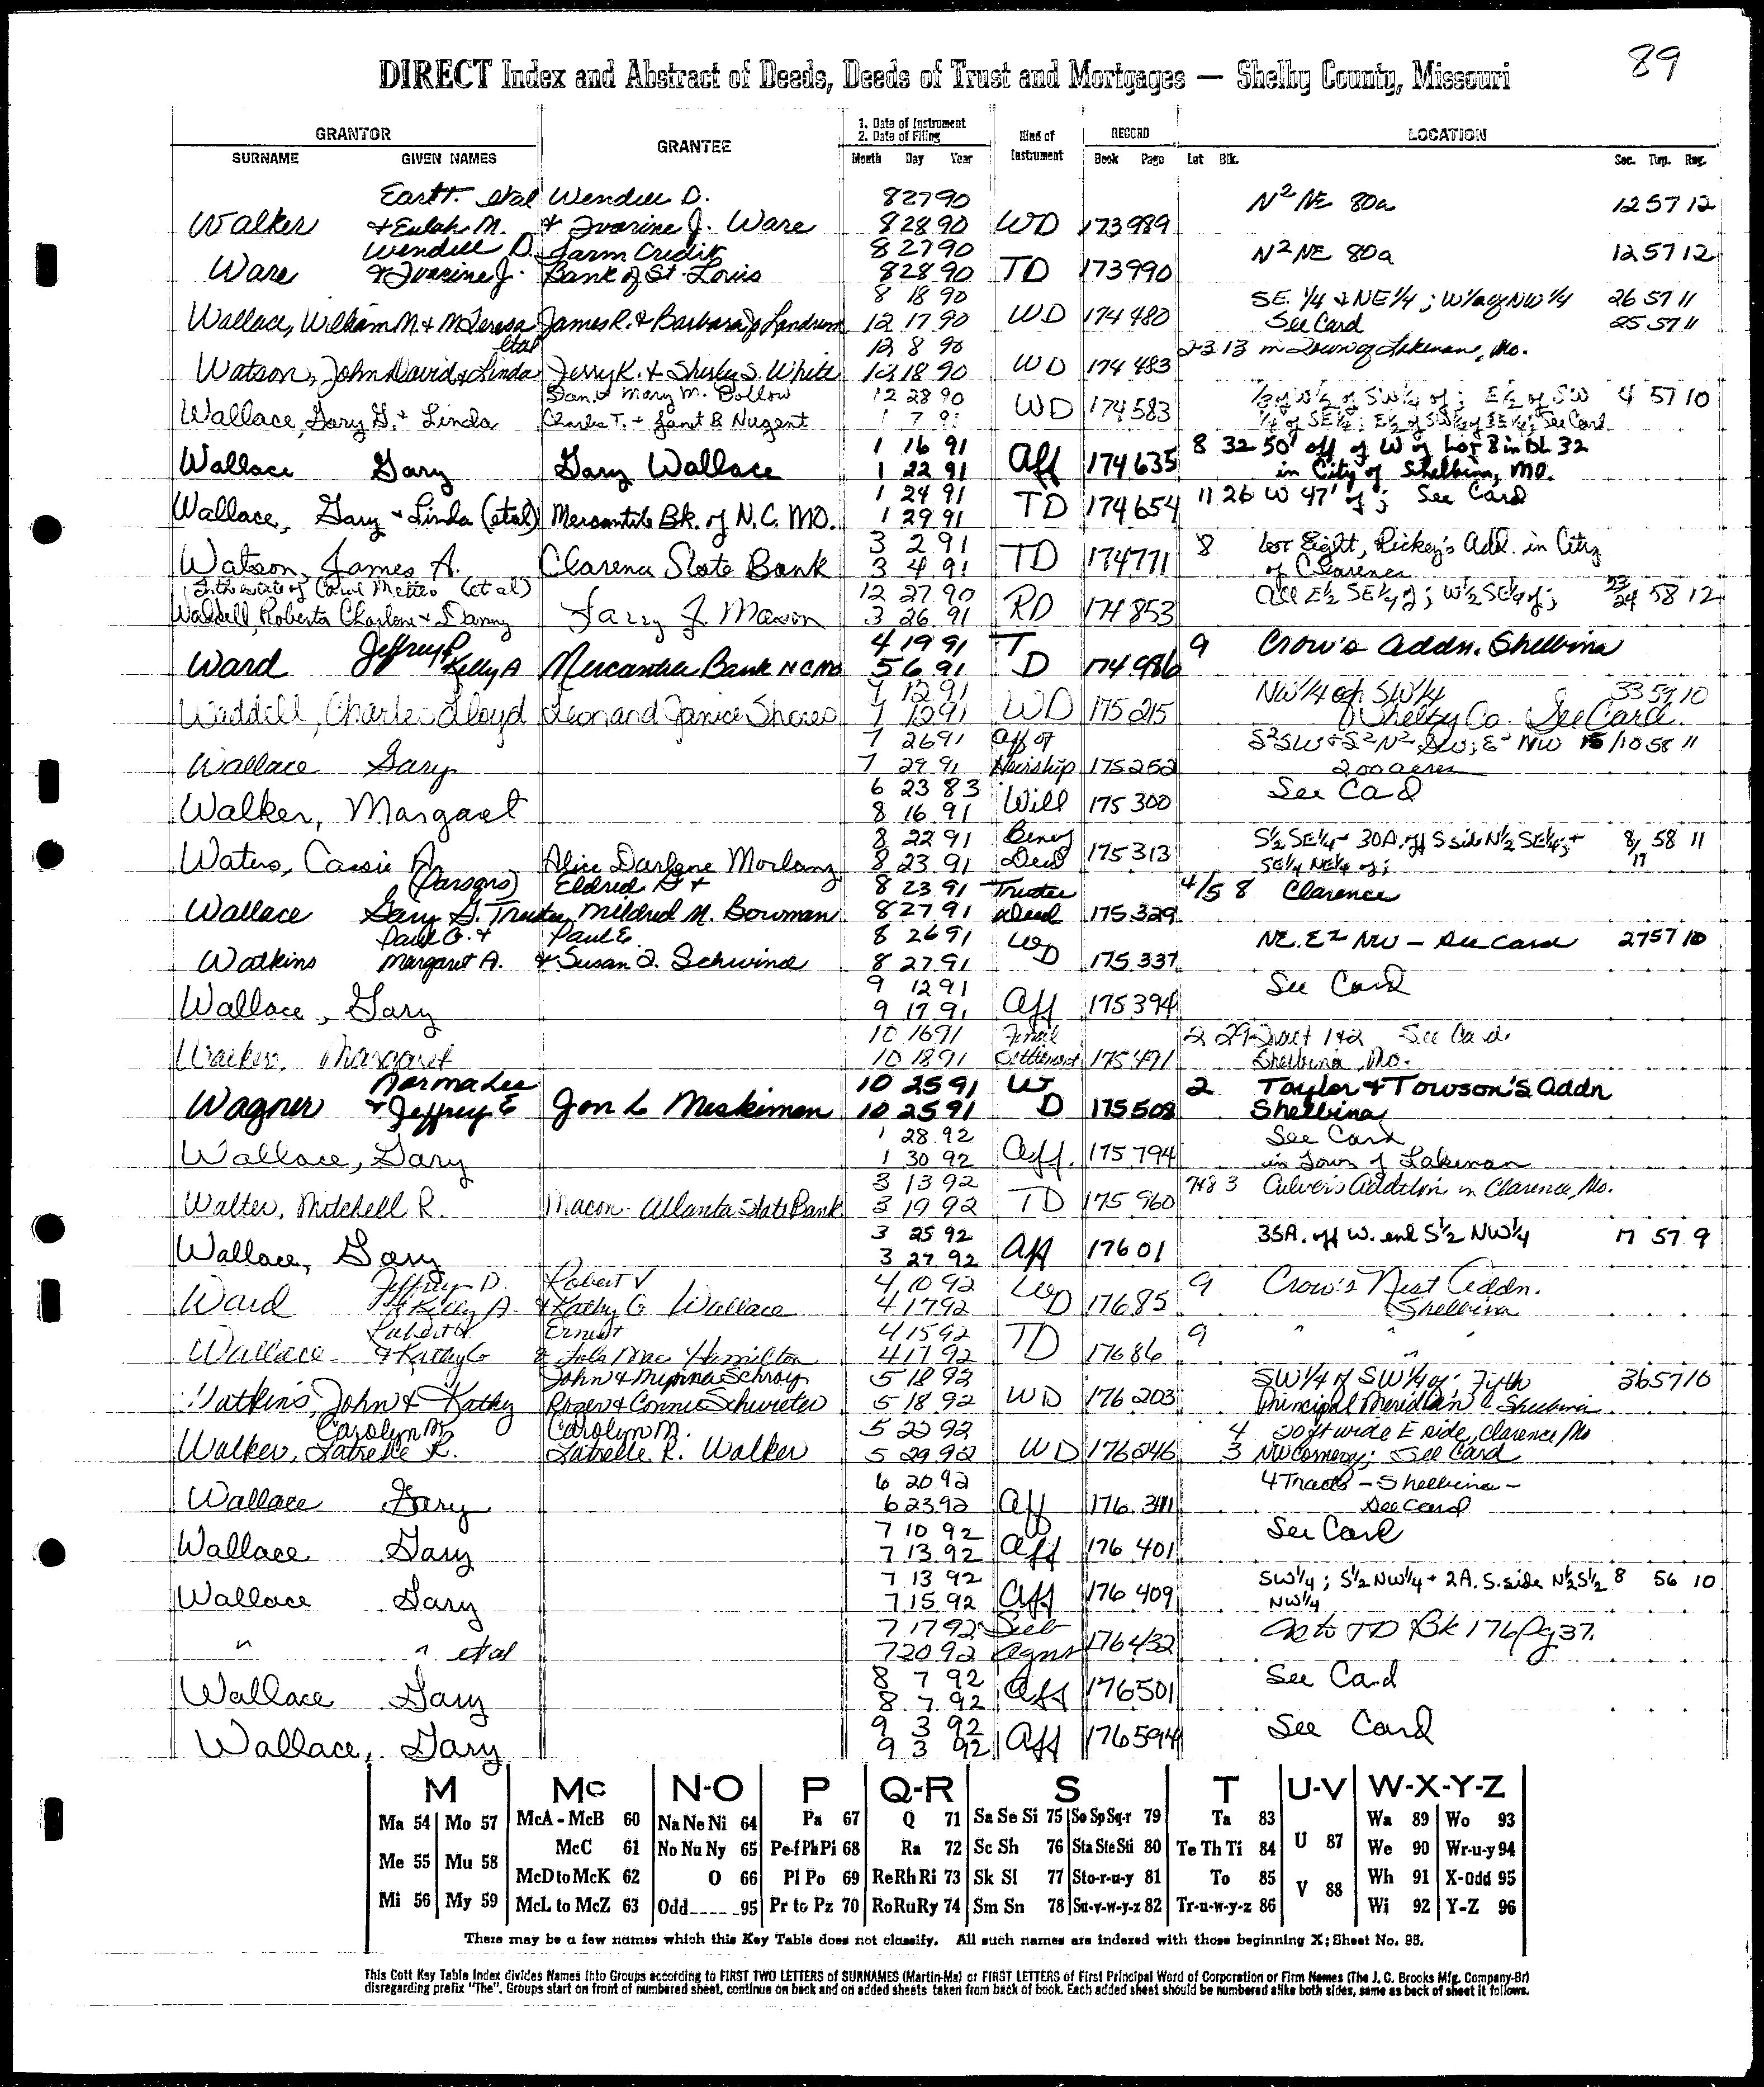 89
DIRECT Index and Abstract of Deeds, Deeds of Trust and Mortgages — Shelby County, Missouri
GRANTOR GRANTEE 1. Date of Instrument 2. Date of Filing Kind of Instrument RECORD LOCATION
SURNAME GIVEN NAMES Month Day Year Book Page Lot Blk. Sec. Twp. Rng.
Earl T. etal Wendell D. 8 27 90 N² NE 80a 12 57 12
Walker & Eulah M. & Ivarine J. Ware 8 28 90 WD 173 989
Wendell D. Farm Credit 8 27 90 N² NE 80a 12 57 12
Ware & Ivarine J. Bank of St. Louis 8 28 90 TD 173 990
8 18 90 SE 1/4 & NE 1/4; W 1/2 of NW 1/4 26 57 11
Wallace, William M. & M. Teresa James R. & Barbara J. Landrum 12 17 90 WD 174 480 See Card 25 57 11
etal 12 8 90 2-3 13 in Town of Lakenan, Mo.
Watson, John David & Linda Jerry K. & Shirley S. White 12 18 90 WD 174 483
Dan & Mary M. Bollow 12 28 90 1/2 of W 1/2 of SW 1/4 of; E 1/2 of SW 4 57 10
Wallace, Gary G. & Linda Charles T. & Janet B Nugent 1 7 91 WD 174 583 1/4 of SE 1/4; E 1/2 of SW 1/4 of SE 1/4; See Card
1 16 91 8 32 50' off of W of Lot 8 in Bl 32
Wallace Gary Gary Wallace 1 22 91 Aff 174 635 in City of Shelbina, MO.
1 24 91 11 26 W 47' of; See Card
Wallace, Gary & Linda (etal) Mercantile Bk. of N.C. MO. 1 29 91 TD 174 654
3 2 91 8 Lot Eight, Rickey's Add. in City
Watson, James A. Clarence State Bank 3 4 91 TD 174 771 of Clarence
(et al) 12 27 90 All E 1/2 SE 1/4 of; W 1/2 SE 1/4 of; 23/24 58 12
Waddell, Roberta Charlene & Danny Larry J. Maxon 3 26 91 RD 174 853
Jeffrey P 4 19 91 T 9 Crow's Addn. Shelbina
Ward Kelly A Mercantile Bank NCMO 5 6 91 D 174 986
7 12 91 NW 1/4 of SW 1/4 33 59 10
Waddell, Charles Lloyd Leon and Janice Shores 7 12 91 WD 175 215 Shelby Co. See Card.
7 26 91 Aff of S² SW & S² N² SW; E² NW 15/10 58 11
Wallace Gary 7 29 91 Heirship 175 252 200 acres
6 23 83 See Card
Walker, Margaret 8 16 91 Will 175 300
8 22 91 Benef S 1/2 SE 1/4 + 30A. off S side N 1/2 SE 1/4; + 8/ 58 11
Waters, Cassie A. Alice Darlene Morlang 8 23 91 Deed 175 313 SE 1/4 NE 1/4 of; 17
(Parsons) Eldred G & 8 23 91 Trustee 4/5 8 Clarence
Wallace Gary G. Trustee Mildred M. Bowman 8 27 91 Deed 175 329
Paul G. & Paul E. 8 26 91 W NE. E² NW – See Card 27 57 10
Watkins Margaret A. & Susan J. Schwind 8 27 91 D 175 337
9 12 91 See Card
Wallace, Gary 9 17 91 Aff 175 394
10 16 91 Final 2 29 Tract 1 & 2 See Card.
Walker, Margaret 10 18 91 Settlement 175 491 Shelbina Mo.
Norma Lee 10 25 91 W 2 Taylor & Towson's Addn
Wagner & Jeffrey E Jon L Meskimen 10 25 91 D 175 508 Shelbina
1 28 92 See Card
Wallace, Gary 1 30 92 Aff. 175 794 in Town of Lakenan
3 13 92 7&8 3 Culver's Addition in Clarence, Mo.
Walter, Mitchell R. Macon-Atlanta State Bank 3 19 92 TD 175 960
3 25 92 35A. off W. end S 1/2 NW 1/4 17 57 9
Wallace, Gary 3 27 92 Aff 176 01
Jeffrey D. Robert V 4 10 92 9 Crow's Nest Addn.
Ward & Kelly A. & Kathy G Wallace 4 17 92 WD 176 85 Shelbina
Robert V. Ernest 4 15 92 9 " " "
Wallace & Kathy G & Lola Mae Hamilton 4 17 92 TD 176 86 "
John & Myrna Schroy 5 18 92 SW 1/4 of SW 1/4 of; Fifth 36 57 10
Watkins, John & Kathy Roger & Connie Schwieter 5 18 92 WD 176 203 Principal Meridian Shelbina
Carolyn M. Carolyn M. 5 22 92 4 20 ft wide E side, Clarence Mo
Walker, Latrelle R. Latrelle R. Walker 5 29 92 WD 176 246 3 NW Corner; See Card
6 20 92 4 Tracts – Shelbina –
Wallace Gary 6 23 92 Aff 176 341 See Card
7 10 92 See Card
Wallace Gary 7 13 92 Aff 176 401
7 13 92 SW 1/4; S 1/2 NW 1/4 + 2A. S. side N 1/2 S 1/2 8 56 10
Wallace Gary 7 15 92 Aff 176 409 NW 1/4
7 17 92 Sub As to TD Bk 176 Pg 37.
" " etal 7 20 92 Agmt 176 432
8 7 92 See Card
Wallace Gary 8 7 92 Aff 176 501
9 3 92 See Card
Wallace, Gary 9 3 92 Aff 176 594
M Mc N-O P Q-R S T U-V W-X-Y-Z
Ma 54 Mo 57 McA - McB 60 Na Ne Ni 64 Pa 67 Q 71 Sa Se Si 75 So Sp Sq-r 79 Ta 83 Wa 89 Wo 93
McC 61 No Nu Ny 65 Pe-f Ph Pi 68 Ra 72 Sc Sh 76 Sta Ste Sti 80 Te Th Ti 84 U 87 We 90 Wr-u-y 94
Me 55 Mu 58 McD to McK 62 O 66 Pl Po 69 Re Rh Ri 73 Sk Sl 77 Sto-r-u-y 81 To 85 Wh 91 X-Odd 95
Mi 56 My 59 McL to McZ 63 Odd----- 95 Pr to Pz 70 Ro Ru Ry 74 Sm Sn 78 Su-v-w-y-z 82 Tr-u-w-y-z 86 V 88 Wi 92 Y-Z 96
There may be a few names which this Key Table does not classify. All such names are indexed with those beginning X; Sheet No. 95.
This Cott Key Table Index divides Names into Groups according to FIRST TWO LETTERS of SURNAMES (Martin-Ma) or FIRST LETTERS of First Principal Word of Corporation or Firm Names (The J. C. Brooks Mfg. Company-Br)
disregarding prefix "The". Groups start on front of numbered sheet, continue on back and on added sheets taken from back of book. Each added sheet should be numbered alike both sides, same as back of sheet it follows.